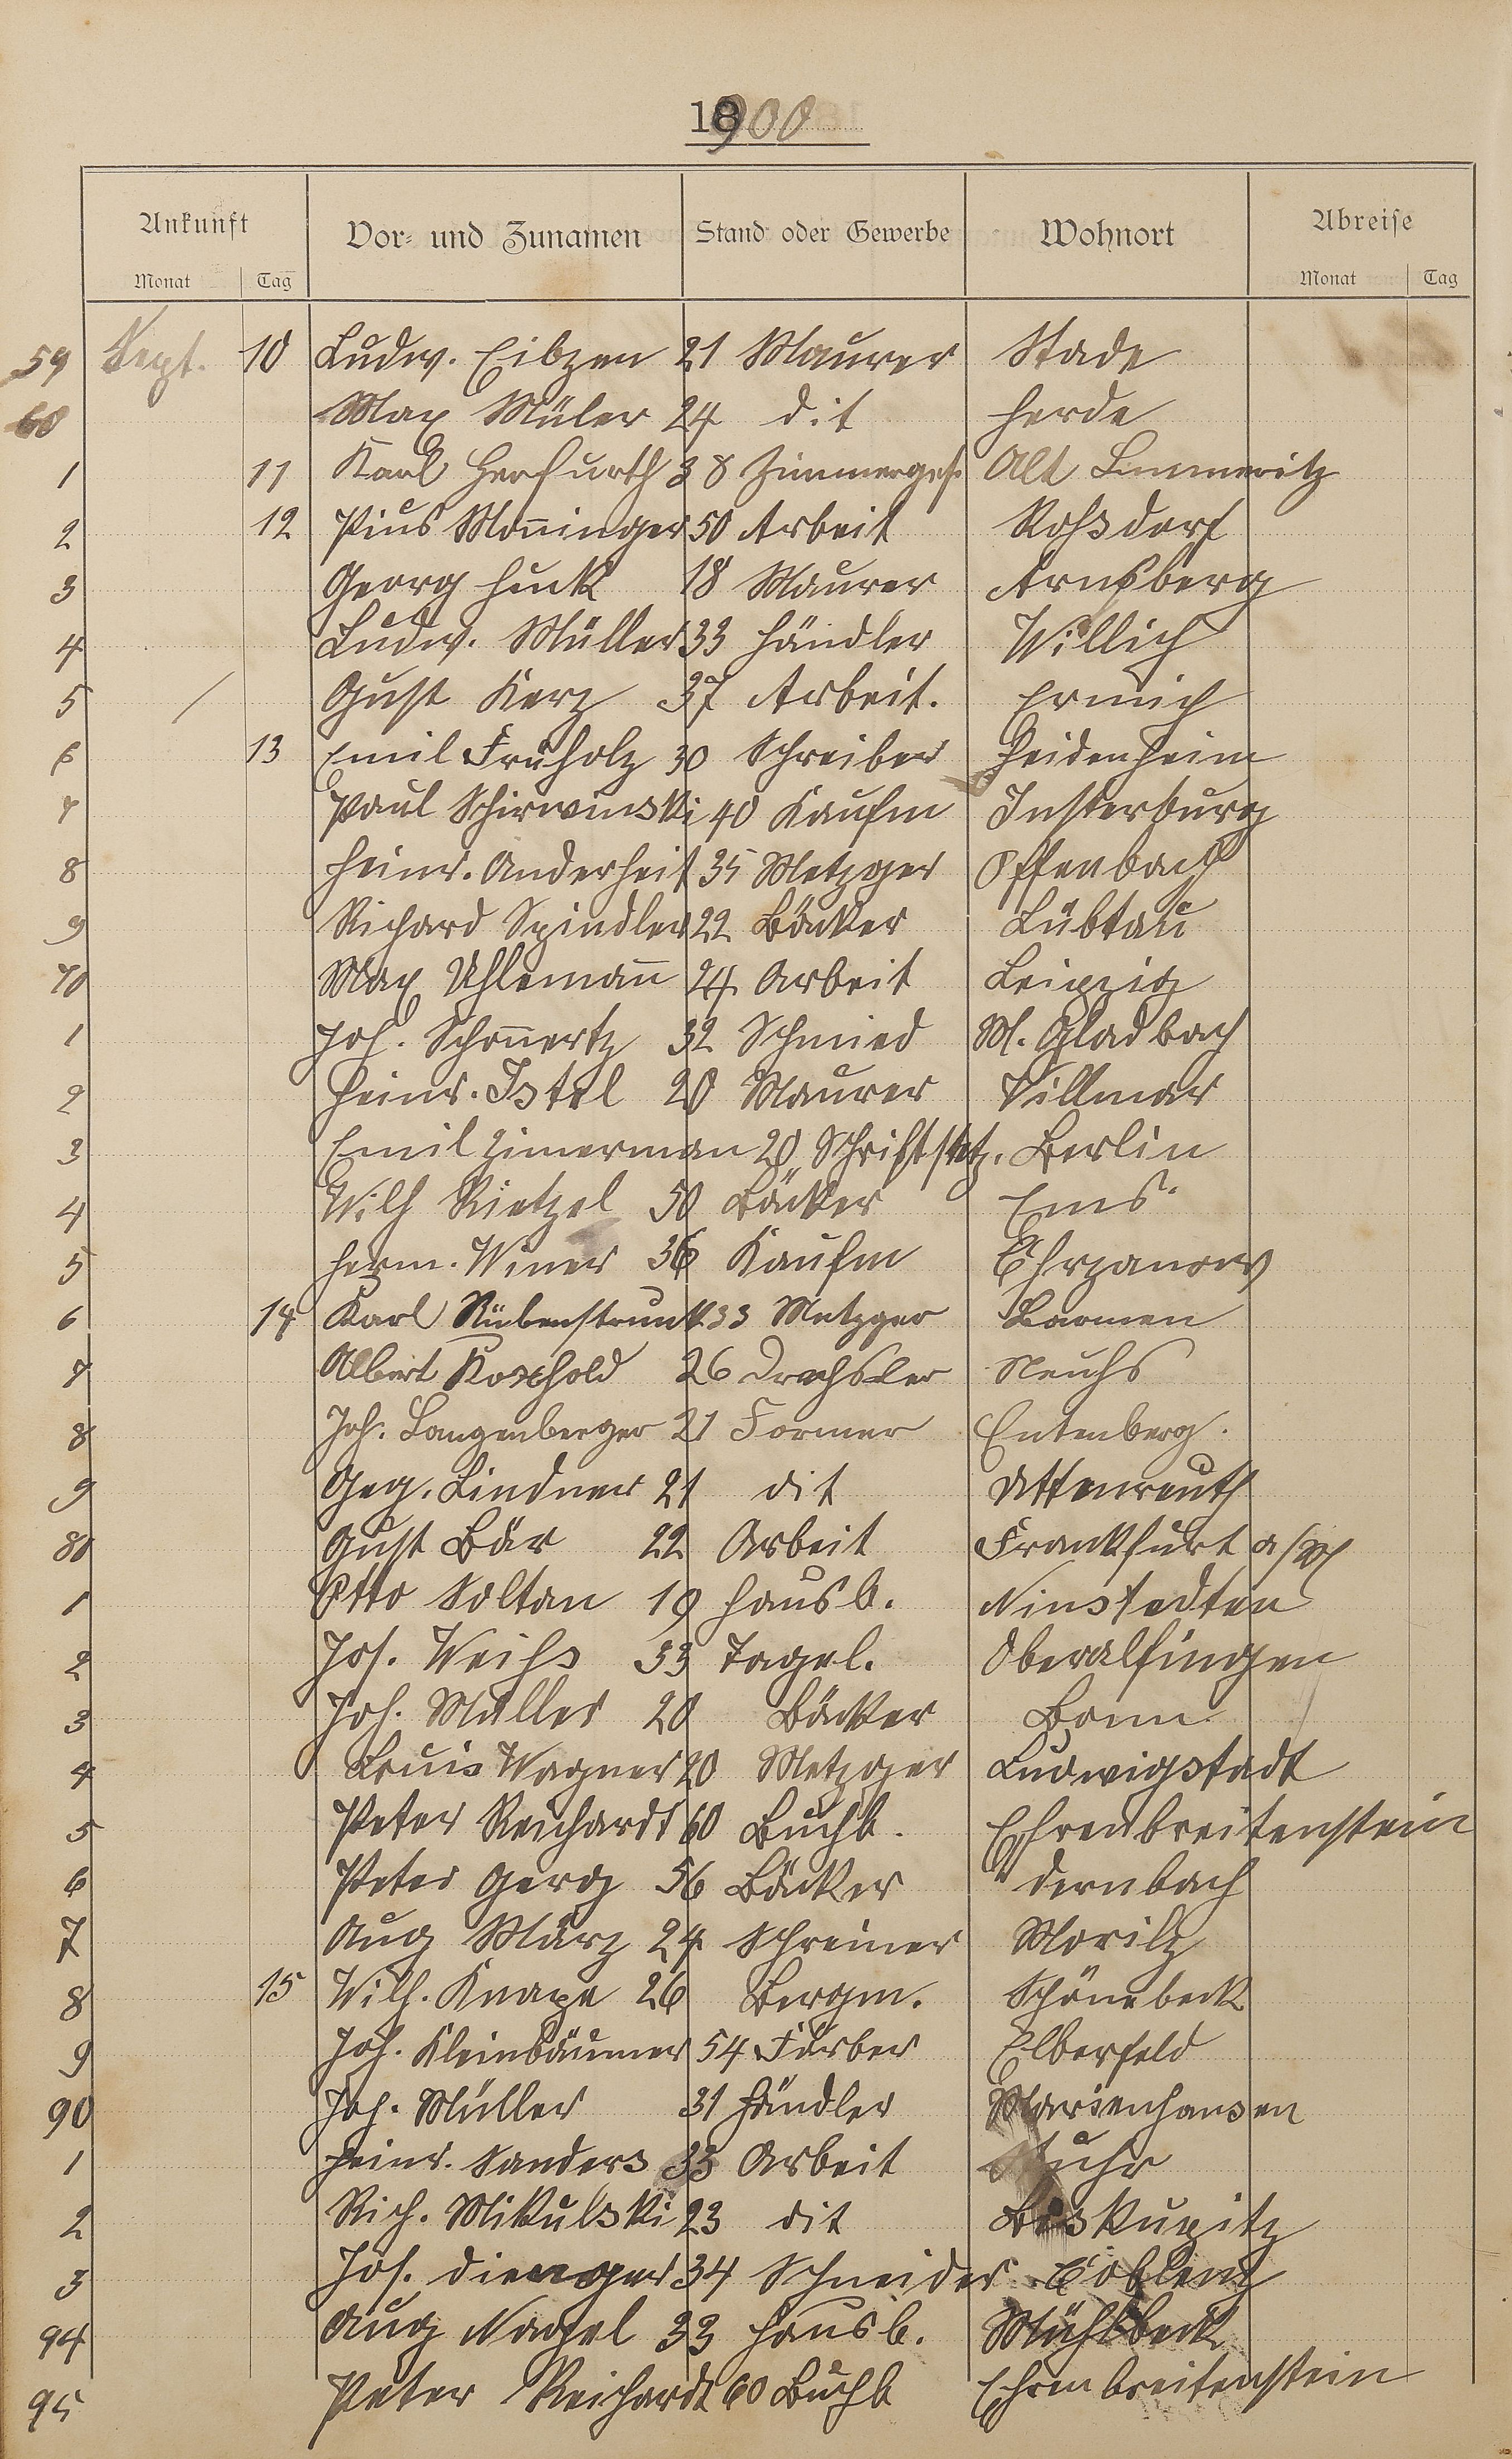 1900
Ankunft Vor- und Zunamen Stand oder Gewerbe Wohnort Abreise
Monat Tag Monat Tag
59 Sept. 10 Ludw. Eibzen 21 Maurer Stade
60 Max Müler 24 dit Herde
1 11 Karl Herfurth 38 Zimmerges. Alt Limmeritz
2 12 Pius Moninger 50 Arbeit Roßdorf
3 Georg Huck 18 Maurer Arnsberg
4 Ludw. Müller 33 Händler Willich
5 Gust Kerz 37 Arbeit.
6 13 Emil Früholz 30 Schreiber Heidenheim
7 Paul Schirwinski 40 Kaufm Insterburg
8 Heinr. Anderheit 35 Metzger Offenbach
9 Richard Spindler 22 Bäcker Lübtau
70 Max Uhlemann 24 Arbeit Leipzig
1 Joh. Schonnertz 32 Schmied M. Gladbach
2 Heinr. Istel 20 Maurer Villmar
3 Emil Zimerman 20 Schriftsetz. Berlin
4 Wilh Rietzel 50 Bäcker Ems
5 Herm. Winer 36 Kaufm Chrzanow
6 14 Karl Rübenstrunk 33 Metzger Barmen
7 Albert Roxhold 26 Drechsler Neuhs
8 Joh. Langenberger 21 Former Entenberg.
9 Geg. Lindner 21 dit Attenreuth
80 Gust Bär 22 Arbeit Frankfurt a/M
1 Otto Soltan 19 Hausb. Ninstedten
2 Jos. Weihs 33 Tagel. Oberalfingen
3 Joh. Müller 20 Bäcker Bonn
4 Louis Wagner 20 Metzger Ludwigstadt
5 Peter Reichardt 60 Buchb. Ehrenbreitenstein
6 Peter Gerg 56 Bäcker Dernbach
7 Aug März 24 Schreiner Moritz
8 15 Wilh. Knape 26 Bergm. Schönebeck
9 Joh. Kleinbäumer 54 Färber Elberfeld
90 Joh. Müller 31 Händler Marienhausen
1 Heinr. Sanders 33 Arbeit Stuhr
2 Rich. Mikulski 23 dit Biskupitz
3 Jos. Dienger 34 Schneider Coblenz
94 Aug Nagel 33 Hausb. Mühlbeck
95 Peter Reichardt 60 Buchb Ehrenbreitenstein